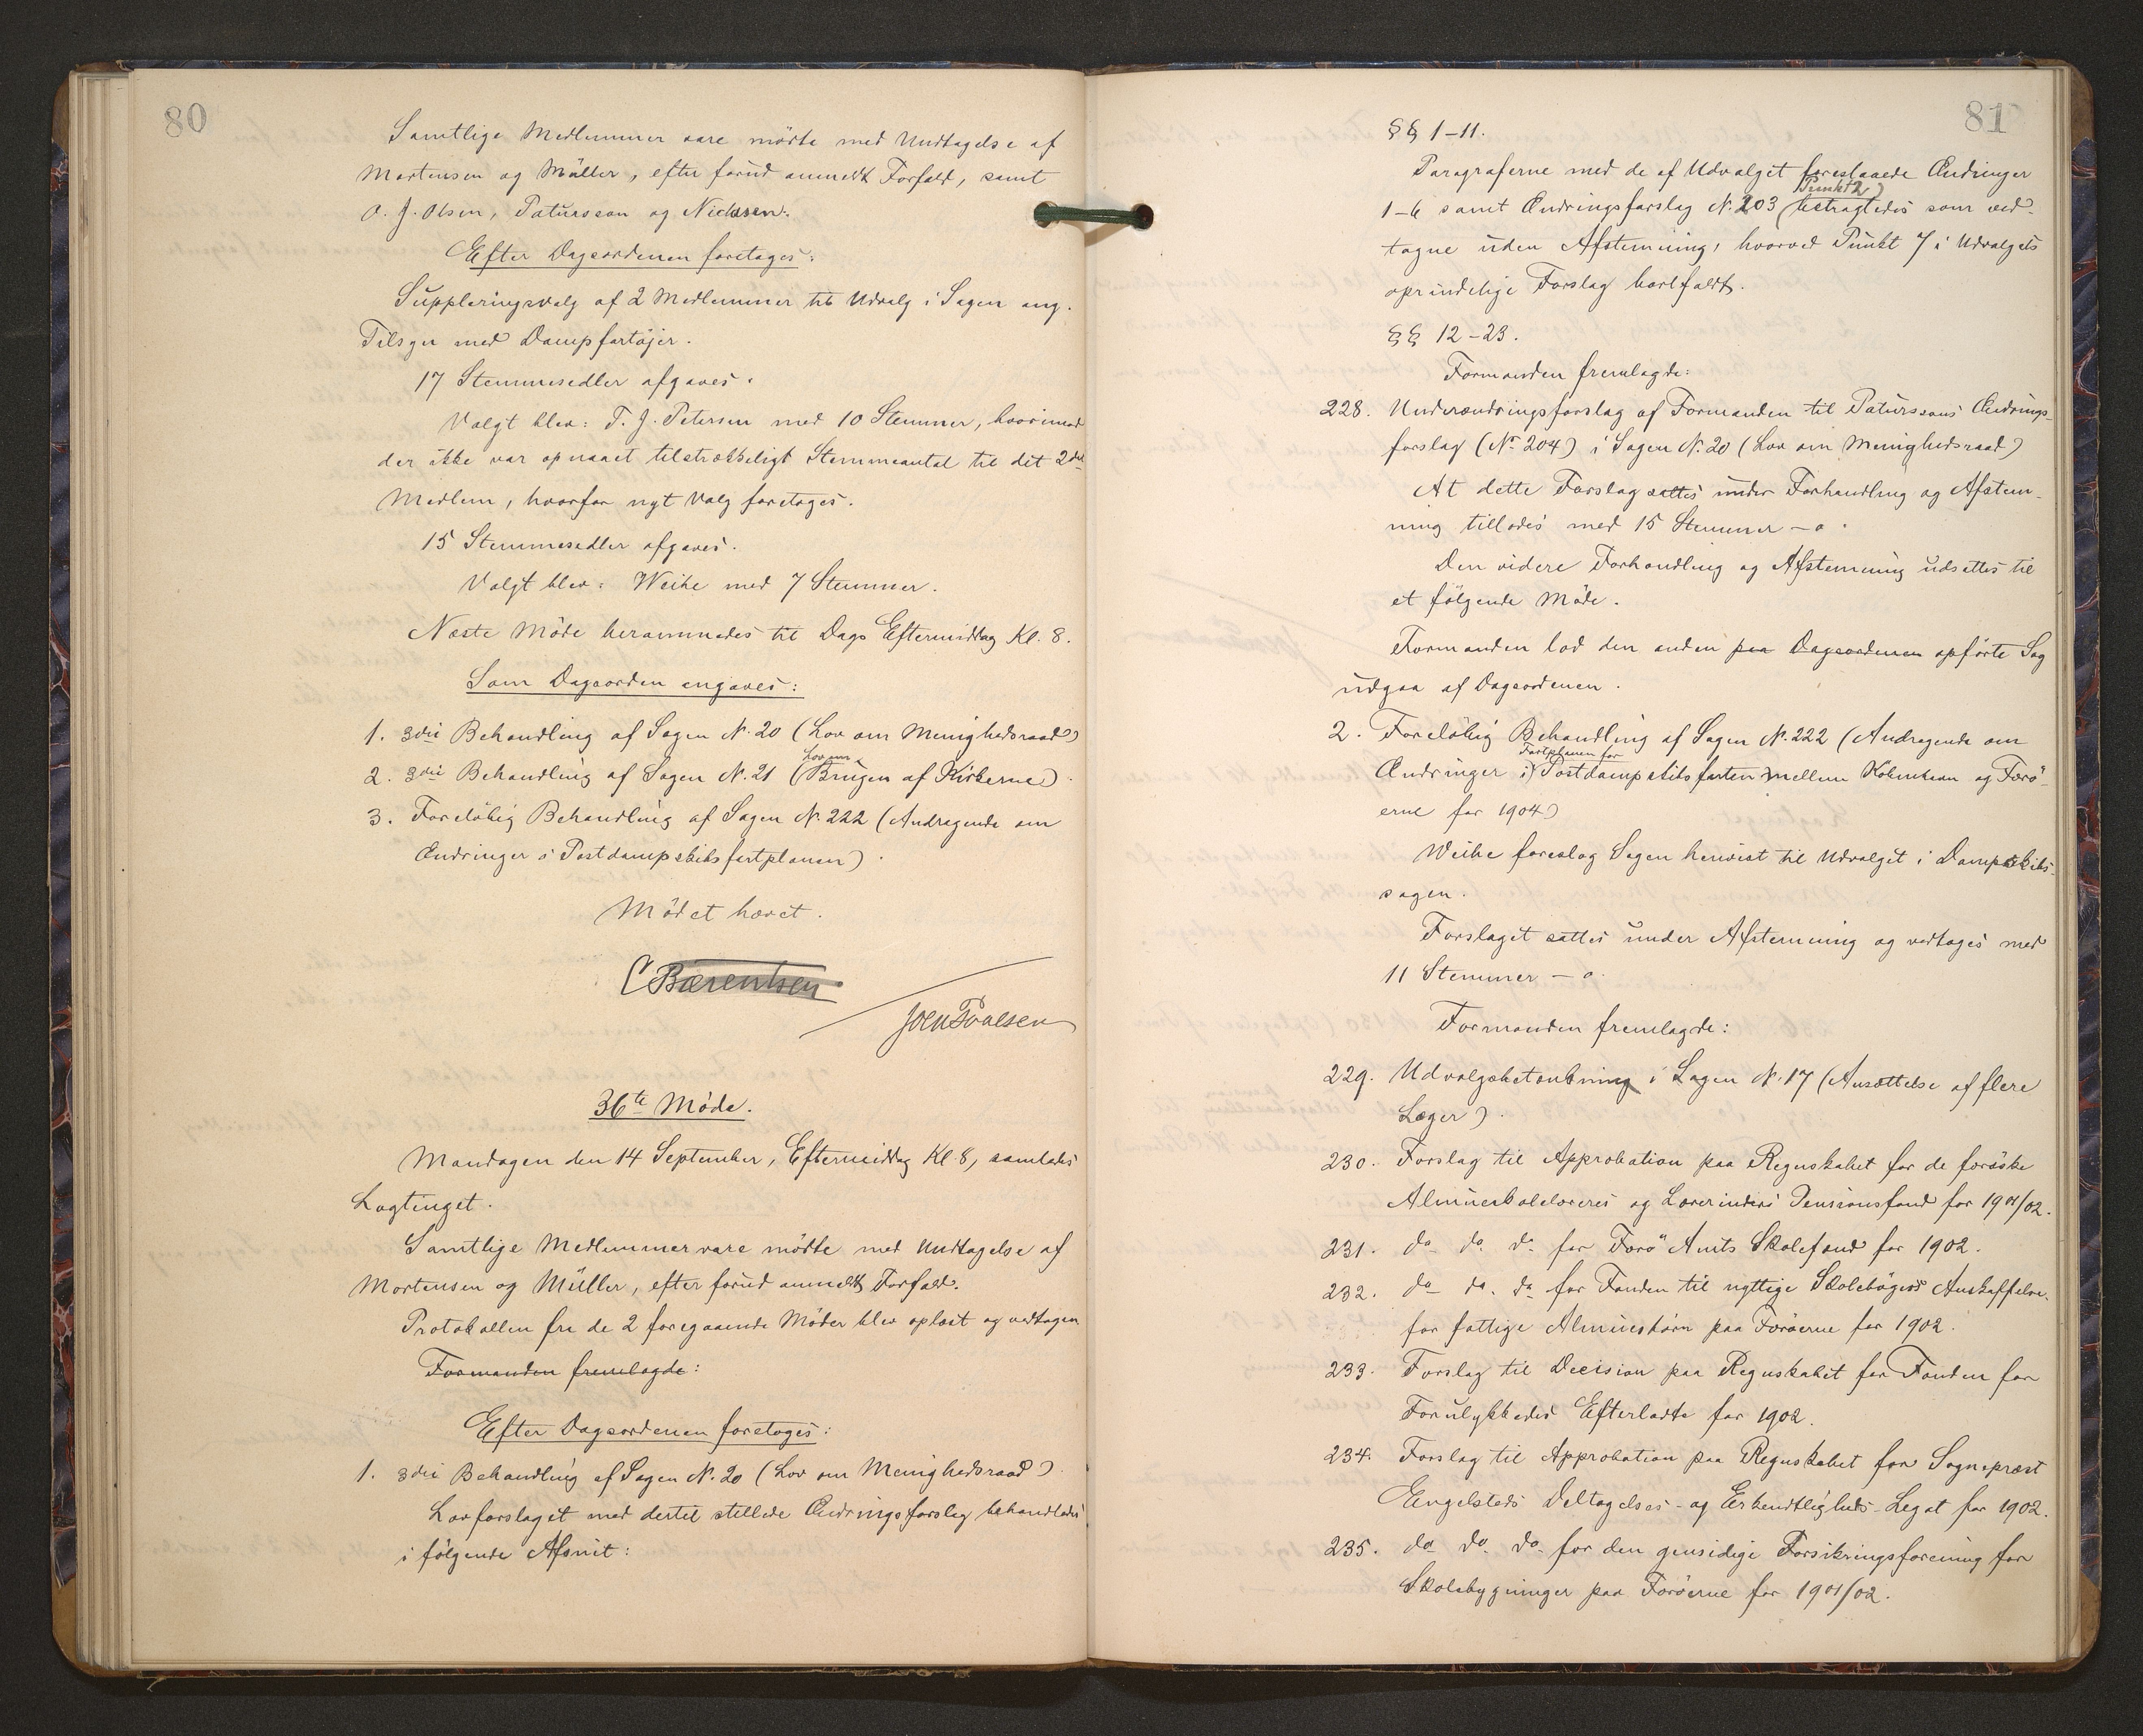 80
Samtlige Medlemmer vare mödte med Undtagelse af
Mortensen og Müller, efter forud anmeldt Forfald, samt
O. J. Olsen, Patursson og Niclasen.
Efter Dagsordenen foretoges:
Suppleringsvalg af 2 Medlemmer til Udvalg i Sagen ang.
Tilsyn med Dampfartöjer.
17 Stemmesedler afgaves.
Valgt blev: T. J. Petersen med 10 Stemmer, hvorimod
der ikke var opnaaet tilstrækkeligt Stemmeantal til det 2det
Medlem, hvorfor nyt Valg foretoges.
15 Stemmesedler afgaves.
Valgt blev: Weihe med 7 Stemmer.
Næste Möde berammedes til Dags Eftermiddag Kl. 8.
Som Dagsorden angaves:
1. 3die Behandling af Sagen N. 20 (Lov om Menighedsraad)
2. 3die Behandling af Sagen N. 21 (Lov om Brugen af Kirkerne).
3. Forelöbig Behandling af Sagen N. 222 (Andragende om
Ændringer i Postdampskibsfartplanen).
Mödet hævet.
C Bærentsen
Joen Poulsen
36te Möde.
Mandagen den 14 September, Eftermiddag Kl. 8, samledes
Lagtinget.
Samtlige Medlemmer vare mödte med Undtagelse af
Mortensen og Müller, efter forud anmeldt Forfald.
Protokollen fra de 2 foregaaende Möder blev oplæst og vedtagen
Formanden fremlagde:
Efter Dagsordenen foretoges:
1. 3die Behandling af Sagen N. 20 (Lov om Menighedsraad).
Lovforslaget med dertil stillede Ændringsforslag behandledes
i fölgende Afsnit:
81
§§ 1-11.
Paragraferne med de af Udvalget foreslaaede Ændringer
1-6 samt Ændringsforslag N. 203 (Punkt 2) betragtedes som ved-
tagne uden Afstemning, hvorved Punkt 7 i Udvalgets
oprindelige Forslag bortfaldt.
§§ 12-23.
Formanden fremlagde:
228. Underændringsforslag af Formanden til Paturssons Ændrings-
forslag (Nr 204) i Sagen N. 20 (Lov om Menighedsraad)
At dette Forslag sattes under Forhandling og Afstem-
ning tillodes med 15 Stemmer - o.
Den videre Forhandling og Afstemning udsattes til
et fölgende Möde.
Formanden lod den anden paa Dagsordenen opförte Sag
udgaa af Dagsordenen.
2. Forelöbig Behandling af Sagen N. 222 (Andragende om
Ændringer i Fartplanen for Postdampskibsfarten mellem Köbenhavn og Færö-
erne for 1904)
Weihe foreslog Sagen henvist til Udvalget i Dampskibs-
sagen.
Forslaget sattes under Afstemning og vedtoges med
11 Stemmer - o.
Formanden fremlagde:
229. Udvalgsbetænkning i Sagen N. 17 (Ansættelse af flere
Læger).
230. Forslag til Approbation paa Regnskabet for de færöske
Almueskolelæreres og Lærerinders Pensionsfond for 1901/02.
231. do do do for Færö Amts Skolefond for 1902.
232. do do do for Fonden til nyttige Skolebögers Anskaffelse
for fattige Almuesbörn paa Færöerne for 1902.
233. Forslag til Decision paa Regnskabet for Fonden for
Forulykkedes Efterladte for 1902.
234. Forslag til Approbation paa Regnskabet for Sognepræst
Engelsteds Deltagelses- og Erkendtligheds-Legat for 1902.
235. do do do for den gensidige Forsikringsforening for
Skolebygninger paa Færöerne for 1901/02.